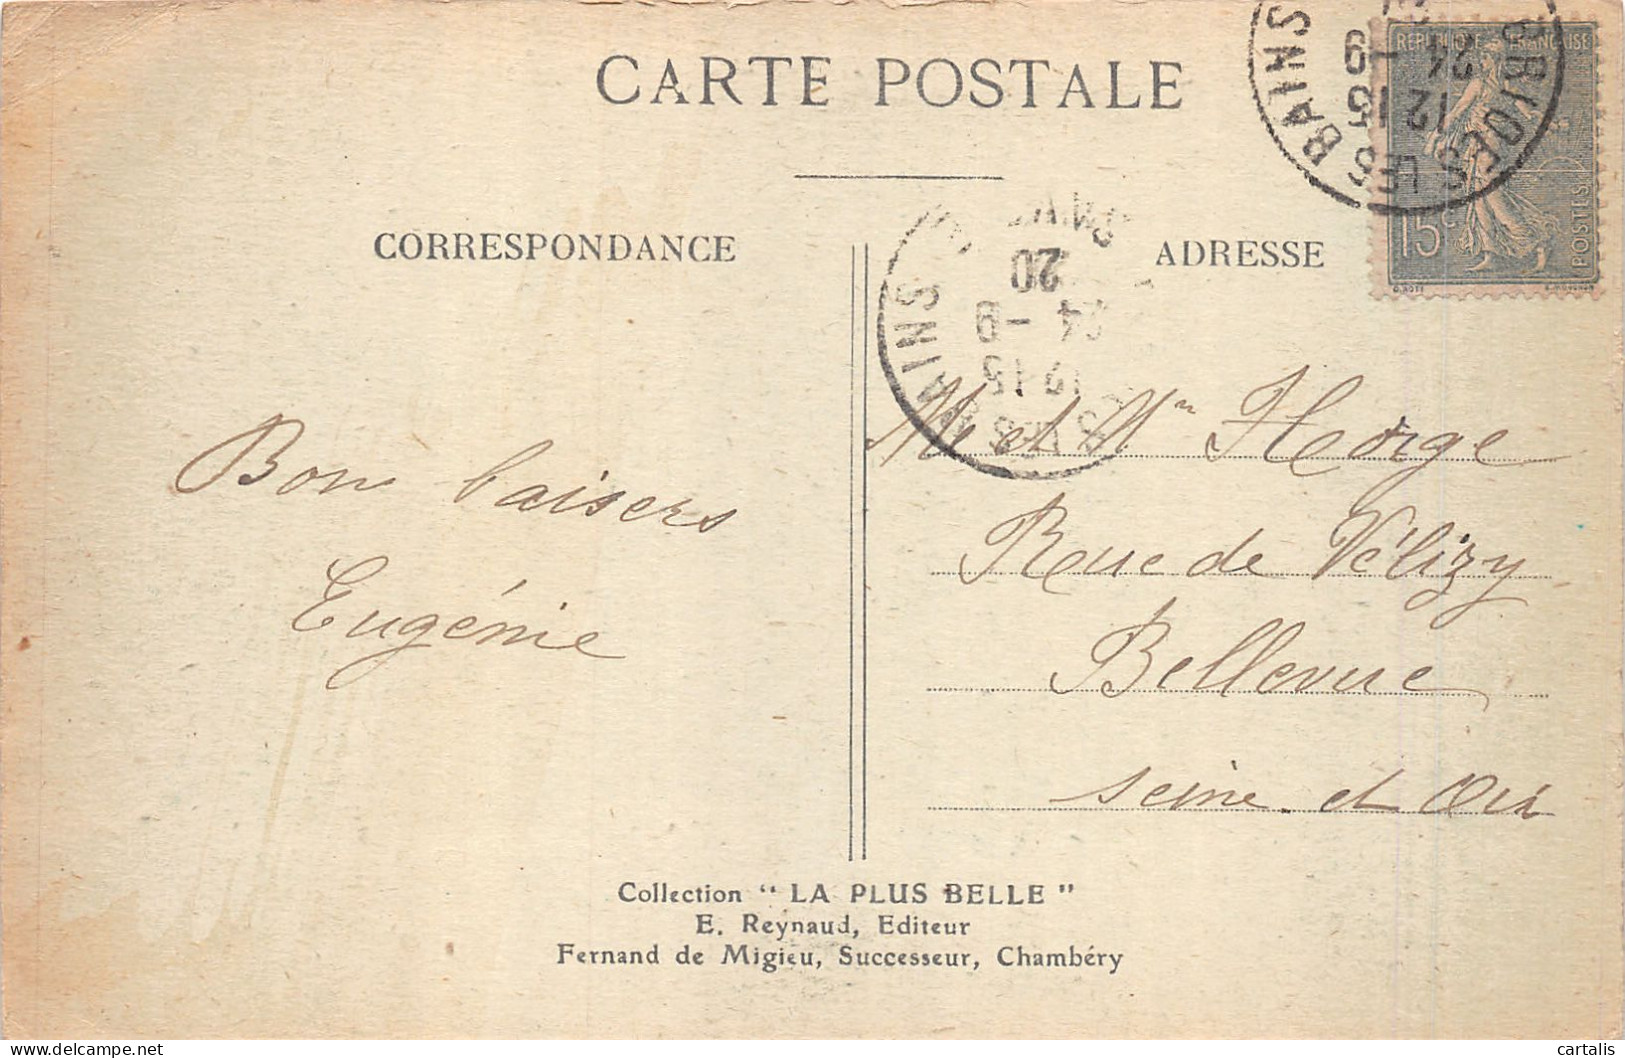 CARTE POSTALE
CORRESPONDANCE
ADRESSE
RÉPUBLIQUE FRANÇAISE
15c
POSTES
BRIDES LES BAINS
12 15
24 - 9
BAINS
12 15
24 - 9
20
Bons baisers
Eugénie
Mr et Mme George
Rue de Vélizy
Bellevue
Seine et Oise
Collection "LA PLUS BELLE"
E. Reynaud, Editeur
Fernand de Migieu, Successeur, Chambéry
cartalis